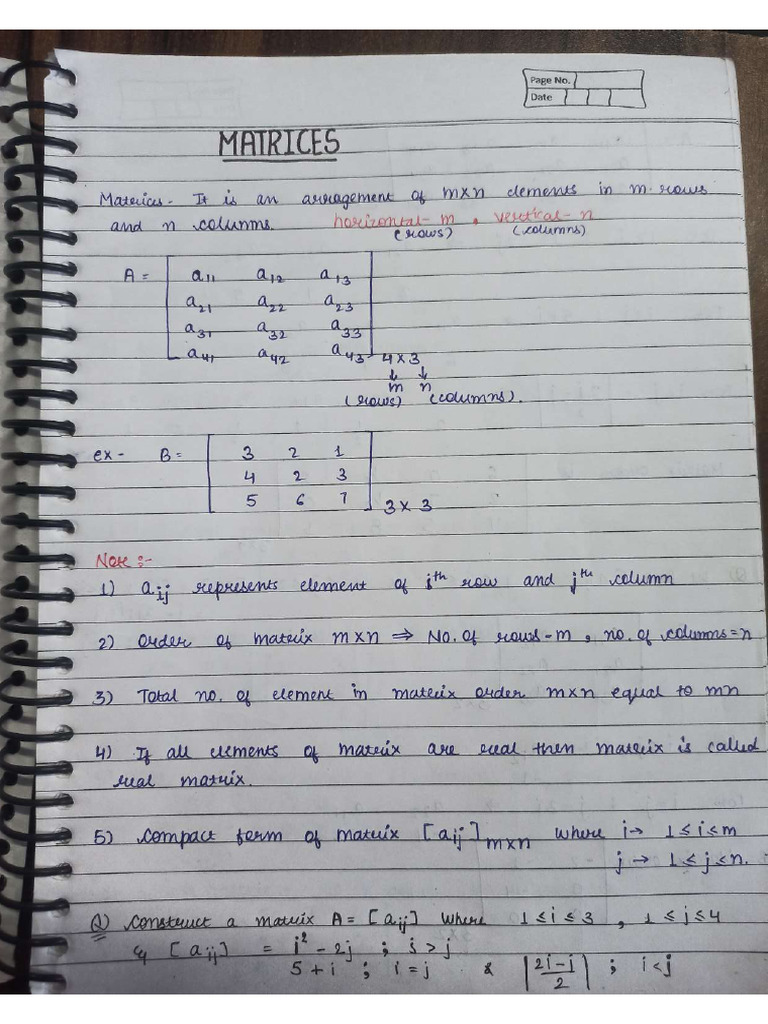 Page No.
Date
MATRICES
Matrices - It is an arragement of m×n elements in m rows
and n columns. horizontal - m , vertical - n
(rows) (columns)
A = [ a₁₁ a₁₂ a₁₃
a₂₁ a₂₂ a₂₃
a₃₁ a₃₂ a₃₃
a₄₁ a₄₂ a₄₃ ] 4×3
↓ ↓
m n
(rows) (columns).
ex - B = [ 3 2 1
4 2 3
5 6 7 ] 3×3
Note :-
1) aᵢⱼ represents element of iᵗʰ row and jᵗʰ column
2) order of matrix m×n ⇒ No. of rows - m , no. of columns = n
3) Total no. of element in matrix order m×n equal to mn
4) If all elements of matrix are real then matrix is called
real matrix.
5) compact form of matrix [aᵢⱼ]ₘₓₙ where i → 1 ≤ i ≤ m
j → 1 ≤ j ≤ n.
Q) construct a matrix A = [aᵢⱼ] where 1 ≤ i ≤ 3 , 1 ≤ j ≤ 4
& [aᵢⱼ] = i² - 2j ; i > j
5 + i ; i = j & |2i-j/2| ; i < j